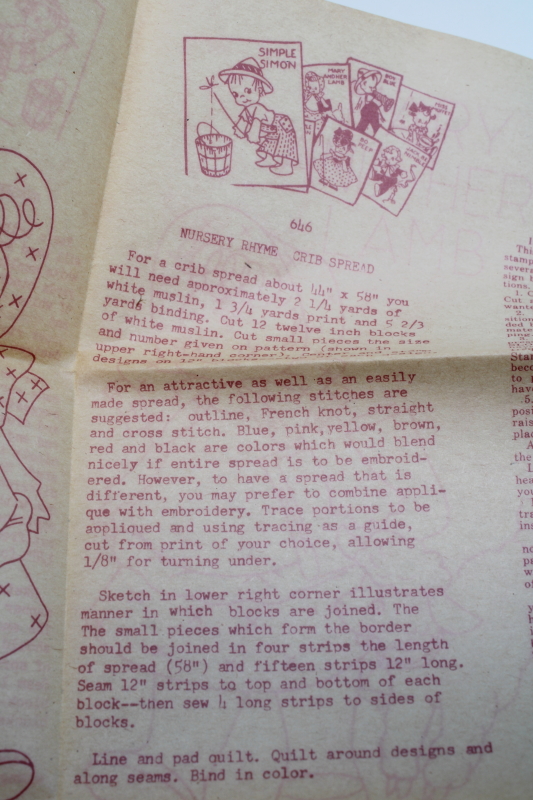 SIMPLE
SIMON
MARY
AND HER
LAMB
BOY
BLUE
MISS
BO
PEEP
646
NURSERY RHYME CRIB SPREAD
For a crib spread about 44" x 58" you
will need approximately 2 1/4 yards of
white muslin, 1 3/4 yards print and 5 2/3
yards binding. Cut 12 twelve inch blocks
of white muslin. Cut small pieces the size
and number given on pattern (shown in
upper right-hand corner).
designs on 12"
For an attractive as well as an easily
made spread, the following stitches are
suggested: outline, French knot, straight
and cross stitch. Blue, pink, yellow, brown,
red and black are colors which would blend
nicely if entire spread is to be embroid-
ered. However, to have a spread that is
different, you may prefer to combine appli-
que with embroidery. Trace portions to be
appliqued and using tracing as a guide,
cut from print of your choice, allowing
1/8" for turning under.
Sketch in lower right corner illustrates
manner in which blocks are joined. The
The small pieces which form the border
should be joined in four strips the length
of spread (58") and fifteen strips 12" long.
Seam 12" strips to top and bottom of each
block--then sew 4 long strips to sides of
blocks.
Line and pad quilt. Quilt around designs and
along seams. Bind in color.